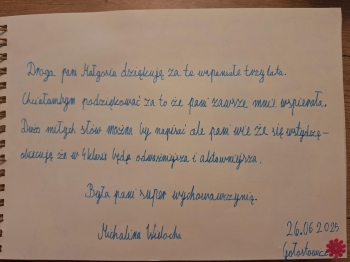 Droga pani Małgosiu dziękuję za te wspaniałe trzy lata.
Chciałambym podziękować za to że pani zawsze mnie wspierała.
Dużo miłych słów można by napisać ale pani wie że się wstydzę -
obiecuję że w 4 klasie będę odważniejsza i aktywniejsza.
Była pani super wychowawczynią.
Michalina
26.06.2025